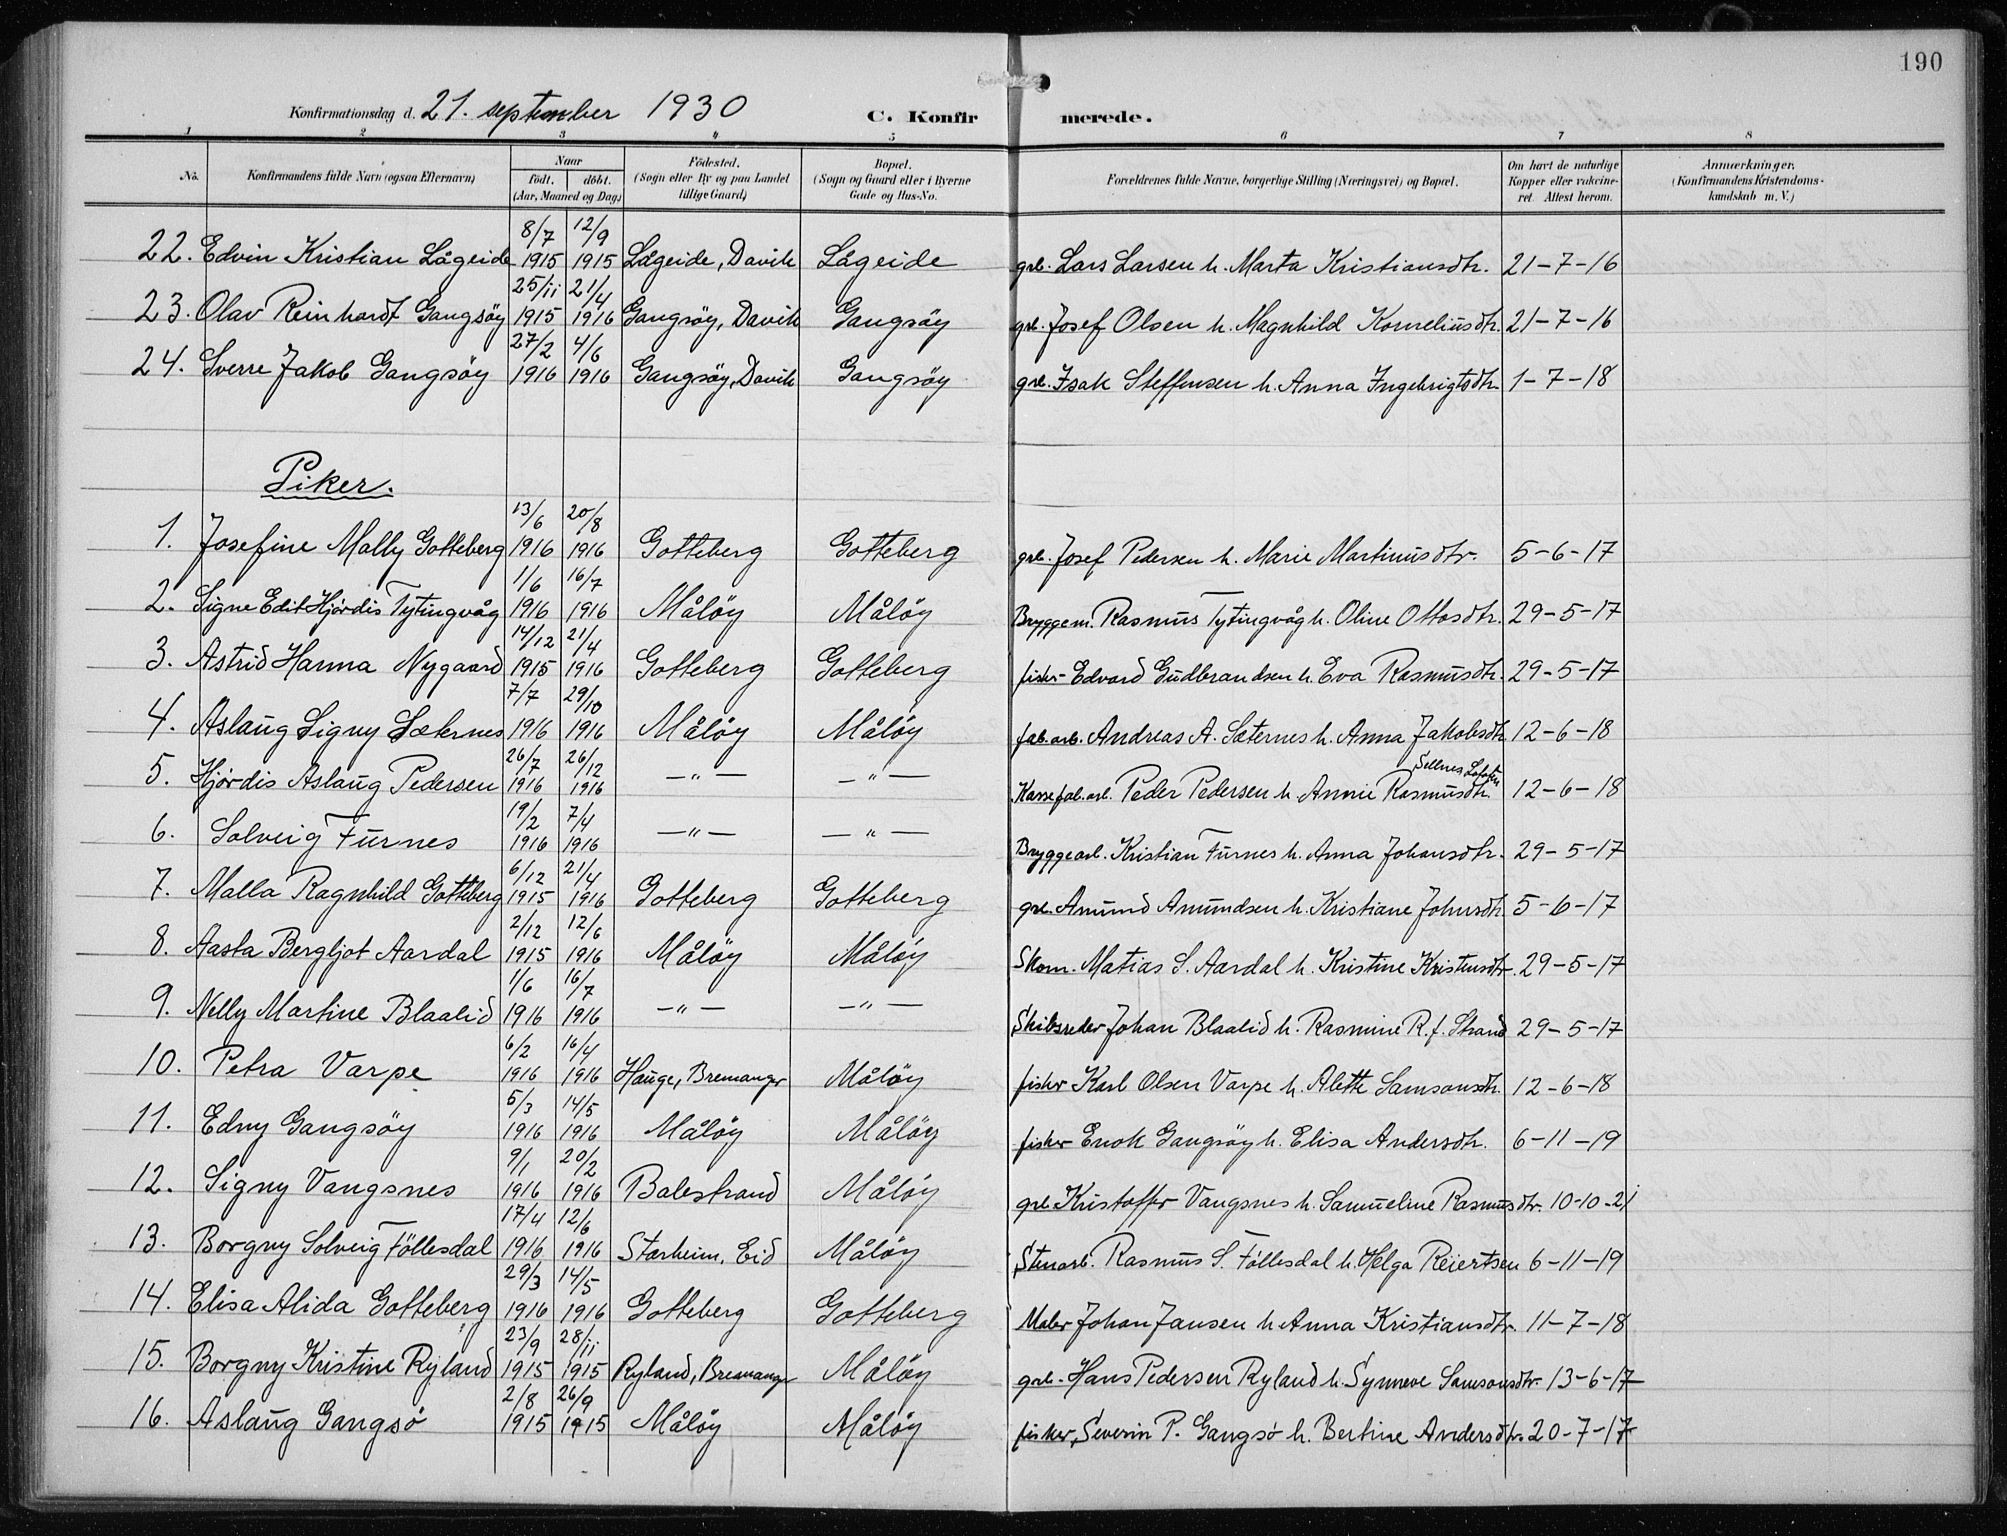 190
Konfirmationsdag d. 21. september 1930 C. Konfirmerede.
1 2 3 4 5 6 7 8
No. Konfirmandens fulde Navn (ogsaa Efternavn) Naar født. døbt. (Aar, Maaned og Dag) Fødested. (Sogn eller By og paa Landet tillige Gaard) Bopæl. (Sogn og Gaard eller i Byerne Gade og Hus-No. Forældrenes fulde Navne, borgerlige Stilling (Næringsvei) og Bopæl. Om havt de naturlige Kopper eller vakcineret. Attest herom. Anmærkninger. (Konfirmandens Kristendomskundskab m. V.)
22. Edvin Kristian Lågeide 8/7 1915 12/9 1915 Lågeide, Davik Lågeide grb. Lars Larsen h. Marta Kristiansdtr. 21-7-16
23. Olav Reinhardt Gangsöy 25/11 1915 21/4 1916 Gangsöy, Davik Gangsöy grb. Josef Olsen h. Magnhild Korneliusdtr. 21-7-16
24. Sverre Jakob Gangsöy 27/2 1916 4/6 1916 Gangsöy, Davik Gangsöy grb. Isak Steffensen h. Anna Ingebrigtsdtr. 1-7-18
Piker.
1. Josefine Mally Gotteberg 13/6 1916 20/8 1916 Gotteberg Gotteberg grb. Josef Pedersen h. Marie Martinusdtr. 5-6-17
2. Signe Edit Hjördis Tytingvåg 1/6 1916 16/7 1916 Målöy Målöy Bryggem. Rasmus Tytingvåg h. Oline Ottosdtr. 29-5-17
3. Astrid Hanna Nygaard 14/12 1915 21/4 1916 Gotteberg Gotteberg fisker Edvard Gudbrandsen h. Eva Rasmusdtr. 29-5-17
4. Aslaug Signy Sæternes 7/7 1916 29/10 1916 Målöy Målöy fab.arb. Andreas A. Sæternes h. Anna Jakobsdtr 12-6-18
5. Hjördis Aslaug Pedersen 26/7 1916 26/12 1916 —"— —"— Kassefab.arb. Peder Pedersen h. Annie Rasmusdtr. Sellnes Lofoten 12-6-18
6. Solveig Furnes 19/2 1916 7/4 1916 —"— —"— Bryggearb. Kristian Furnes h. Anna Johansdtr. 29-5-17
7. Malla Ragnhild Gotteberg 6/12 1915 21/4 1916 Gotteberg Gotteberg grb. Amund Amundsen h. Kristiane Johnsdtr. 5-6-17
8. Aasta Bergljot Aardal 2/12 1915 12/6 1916 Målöy Målöy Skom. Matias S. Aardal h. Kristine Kristensdtr. 29-5-17
9. Nelly Martine Blaalid 1/6 1916 16/7 1916 —"— —"— Skibsreder Johan Blaalid h. Rasmine R. f. Strand 29-5-17
10. Petra Varpe 6/2 1916 16/4 1916 Hauge, Bremanger Målöy fisker Karl Olsen Varpe h. Alette Samsonsdtr. 12-6-18
11. Edny Gangsöy 5/3 1916 14/5 1916 Målöy Målöy fisker Enok Gangsöy h. Elisa Andersdtr. 6-11-19
12. Signy Vangsnes 9/1 1916 20/2 1916 Balestrand Målöy grb. Kristoffer Vangsnes h. Samueline Rasmusdtr. 10-10-21
13. Borgny Solveig Föllesdal 17/4 1916 12/6 1916 Starheim, Eid Målöy Stenarb. Rasmus S. Föllesdal h. Helga Reiertsen 6-11-19
14. Elisa Alida Gotteberg 29/3 1916 14/5 1916 Gotteberg Gotteberg Maler Johan Jansen h. Anna Kristiansdtr. 11-7-18
15. Borgny Kristine Ryland 23/9 1915 28/11 1915 Ryland, Bremanger Målöy grb. Hans Pedersen Ryland h. Synneve Samsonsdtr. 13-6-17
16. Aslaug Gangsö 2/8 1915 26/9 1915 Målöy Målöy fisker, Severin P. Gangsö h. Bertine Andersdtr. 20-7-17